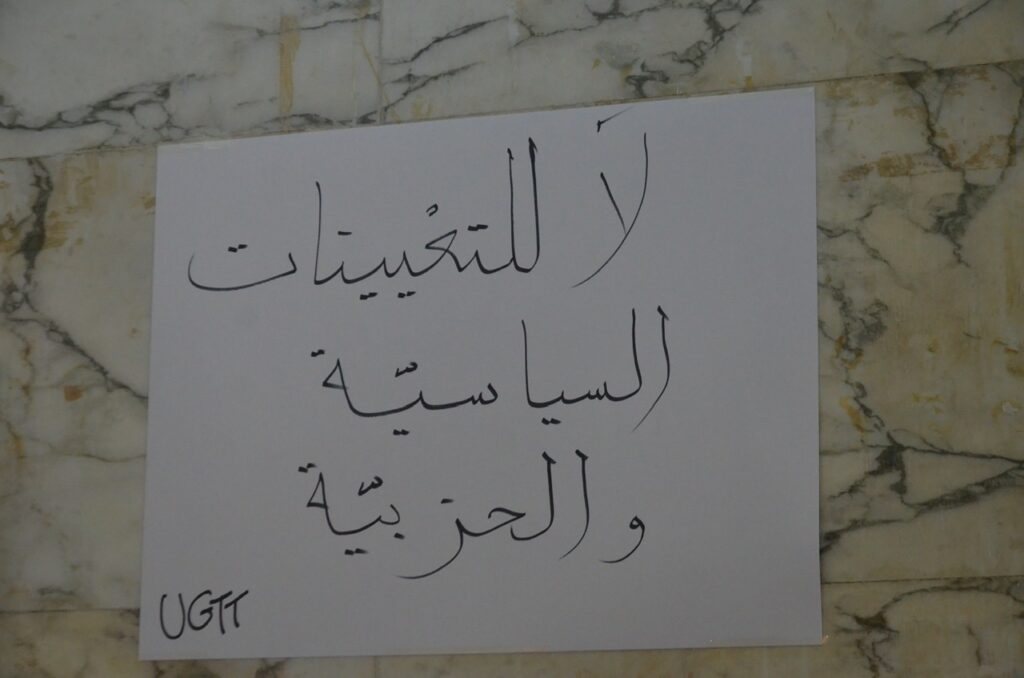 لَا للتعْيينات
السياسيّة
والحزبيّة
UGTT